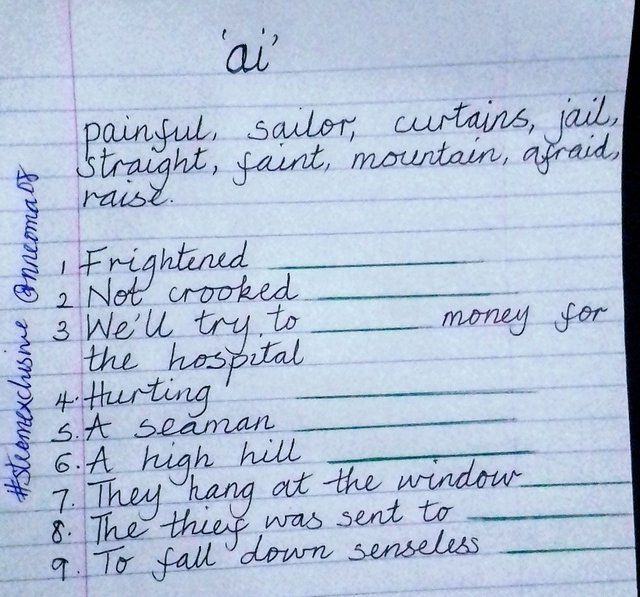 'ai'
painful, sailor, curtains, jail,
straight, faint, mountain, afraid,
raise.
1 Frightened
2 Not crooked
3 We'll try to ______ money for
the hospital
4. Hurting
5. A seaman
6. A high hill
7. They hang at the window
8. The thief was sent to
9. To fall down senseless
#steemexclusive @nneoma08